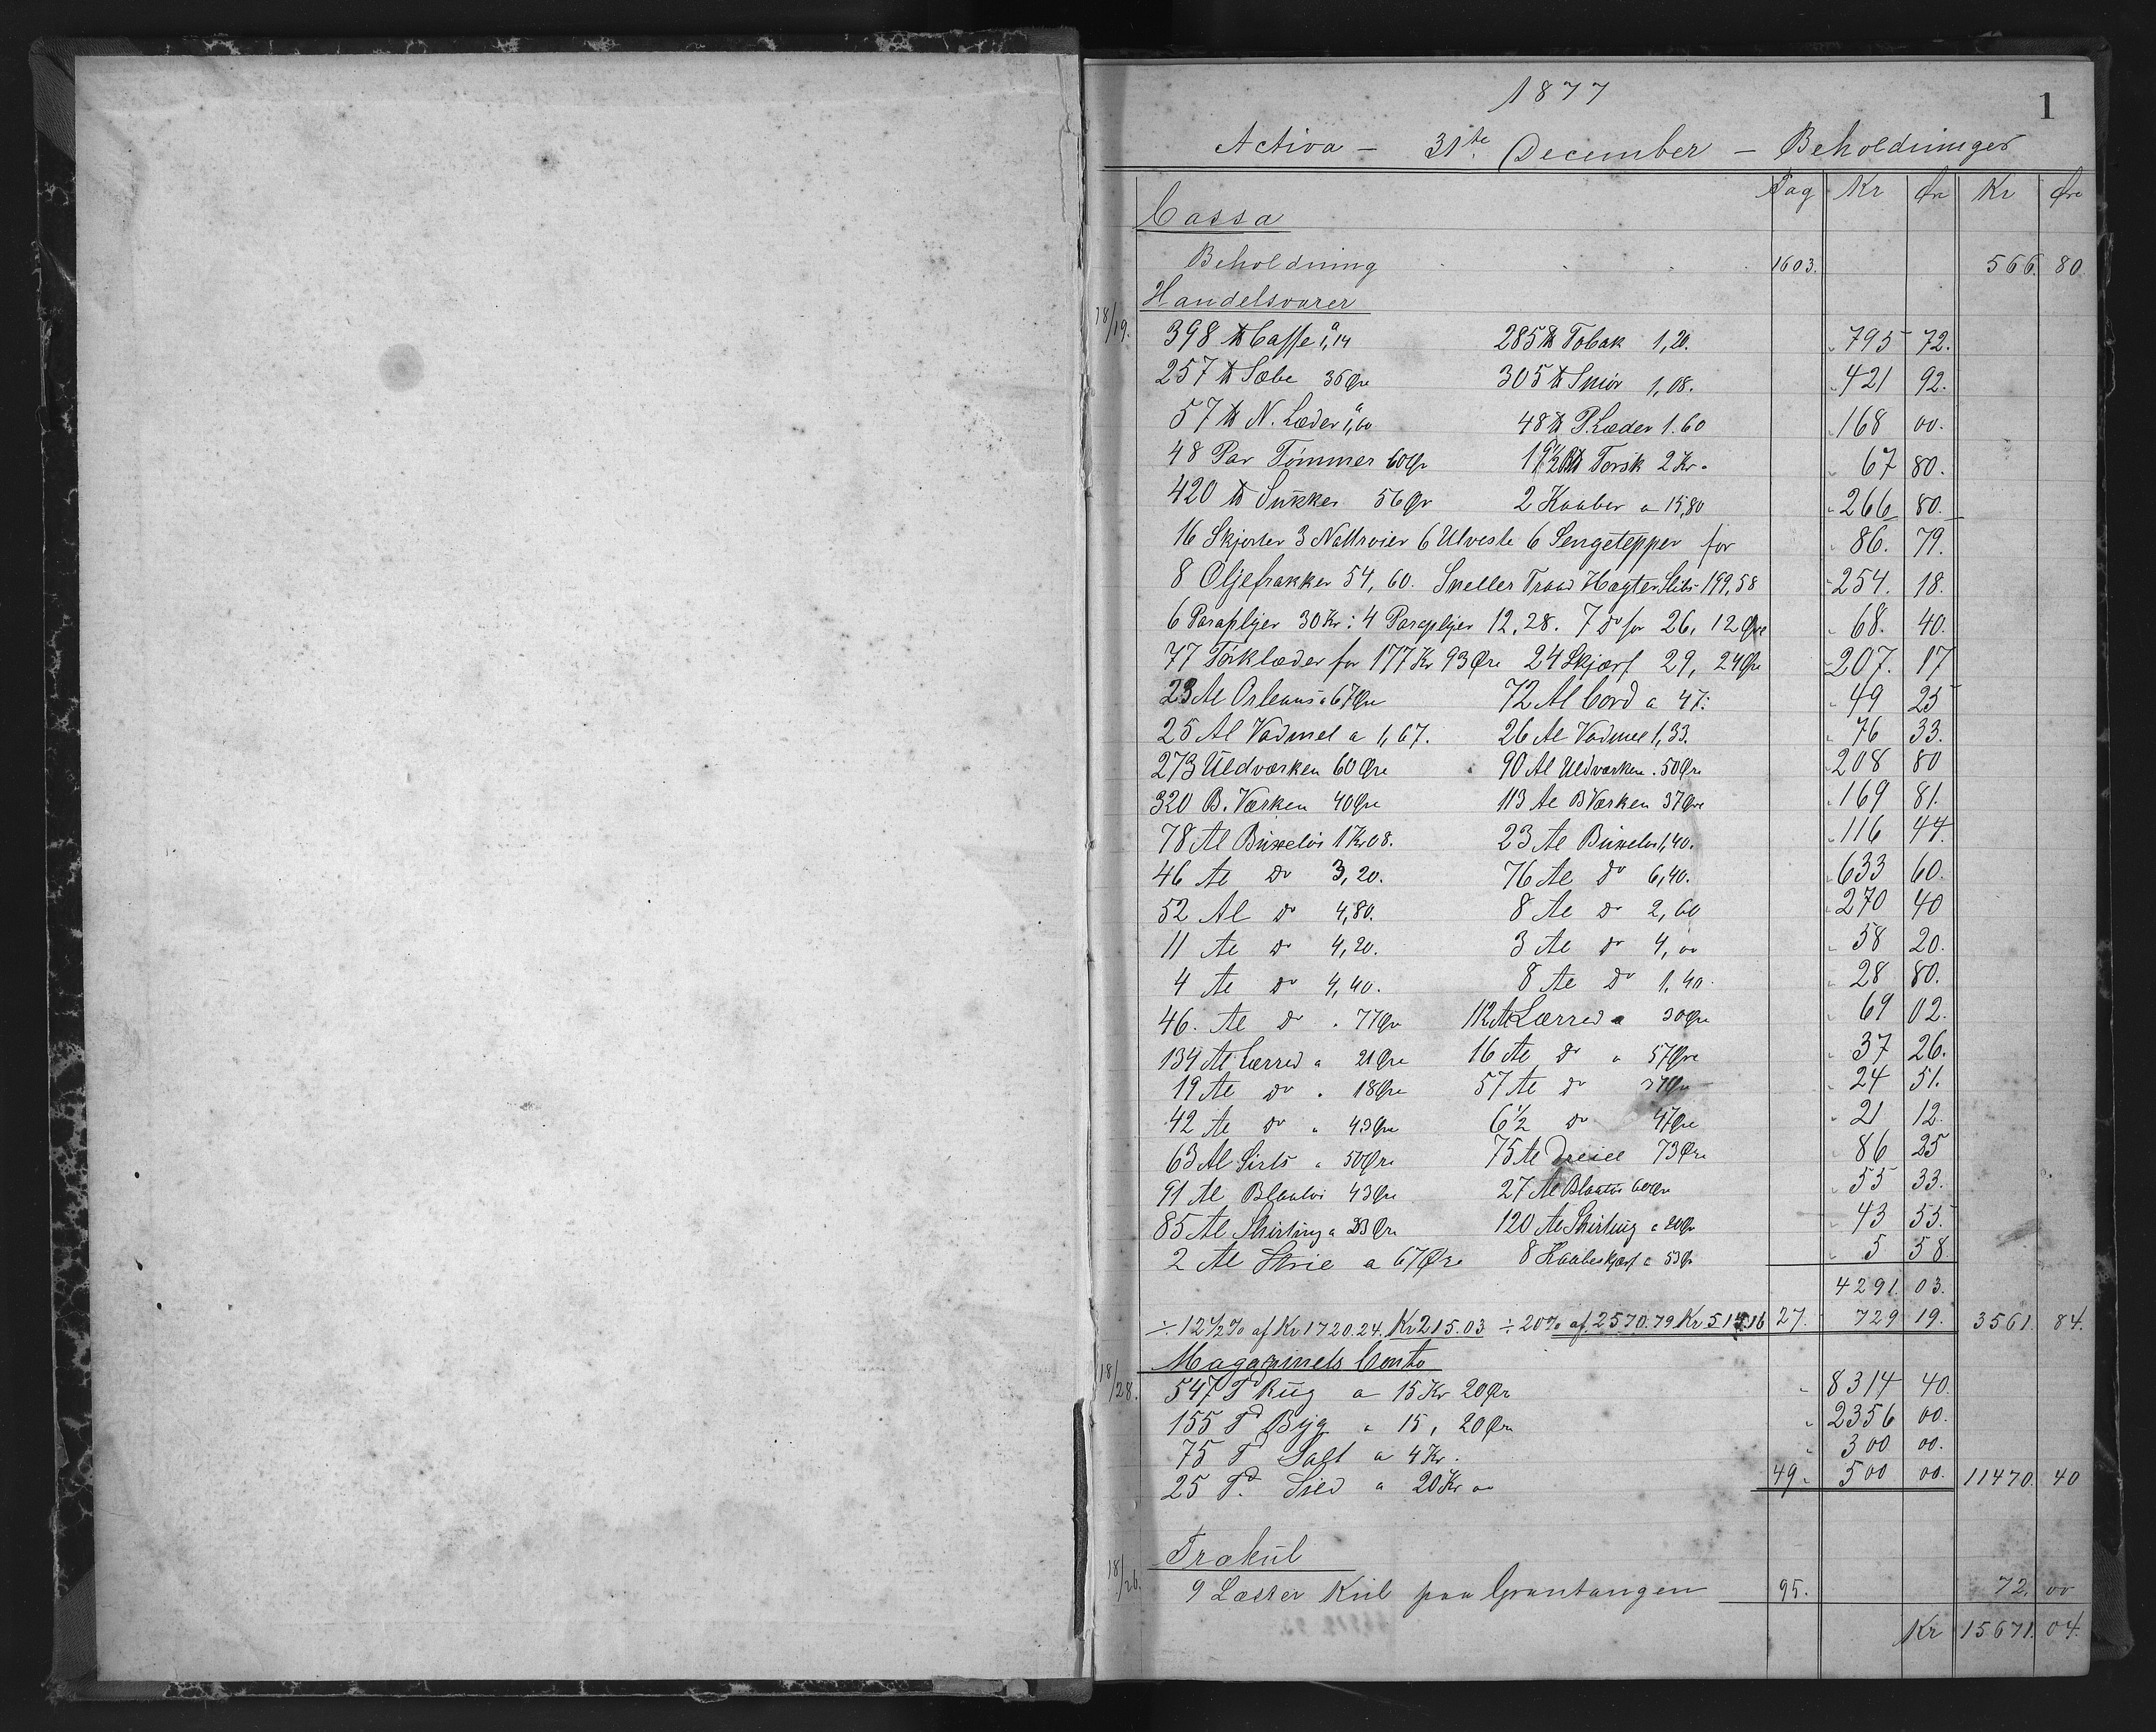 1877
1
Activa - 31te December - Beholdninger
Pag Kr Øre Kr Øre
Cassa
Beholdning 1603. 566. 80
Handelsvarer
18/19. 398 ℔ Caffe a 1,14 285 ℔ Tobak 1,20. " 795 72.
257 ℔ Sæbe 36 Øre 305 ℔ Smör 1,08. " 421 92.
57 ℔ N. Læder a 1,60 48 ℔ P.Læder 1.60 " 168 00.
48 Par Tömmer 60 Øre 19 1/2 Torsk 2 Kr. " 67 80.
420 ℔ Sukker 56 Ør 2 Kaaber a 15,80 " 266 80.
16 Skjorter 3 Nattroier 6 Ulveste 6 Sengetepper for " 86. 79.
8 Oljefrakker 54,60. Sneller Traad Hægter Slibs 199,58 " 254. 18.
6 Paraplyer 30 Kr: 4 Paraplyer 12,28. 7 do for 26, 12 Øre " 68. 40.
77 Törklæder for 177 Kr 93 Øre 24 Skjærf 29, 24 Øre " 207. 17
23 Al Orleans a 67 Øre 72 Al Cord a 47. " 49 25
25 Al Vadmel a 1,67. 26 Al Vadmel 1,33. " 76 33.
273 Uldværken 60 Øre 90 Al Uldværken . 50 Øre " 208 80
320 B. Værken 40 Øre 113 Al B Værken 37 Øre " 169 81.
78 Al Buxetöi 1 Kr 08. 23 Al Buxetöi 1,40. " 116 44.
46 Al do 3,20. 76 Al do 6,40. " 633 60.
52 Al do 4,80. 8 Al do 2,60 " 270 40
11 Al do 4,20. 3 Al do 4,00 " 58 20.
4 Al do 4,40. 8 Al do 1,40. " 28 80.
46. Al do . 77 Øre 112 Al Lærred a 30 Øre " 69 02.
134 Al Lærred a 21 Øre 16 Al do a 57 Øre " 37 26.
19 Al do . 18 Øre 57 Al do 37 Øre " 24 51.
42 Al do a 43 Øre 6 1/2 do 47 Øre " 21 12.
63 Al Sirts a 50 Øre 75 Al Dreiel 73 Øre " 86 25
91 Al Blaatöi 43 Øre 27 Al Blaatöi 60 Øre " 55 33.
85 Al Shirting a 23 Øre 120 Al Shirting a 20 Øre " 43 55.
2 Al Strie a 67 Øre 8 Kaabeskjærf a 53 Ør " 5 58
4291. 03.
÷ 12 1/2 % af Kr 1720.24. Kr 215.03 ÷ 20% af 2570.79 Kr 514.16 27. 729 19. 3561. 84.
Maggazinets Conto
18/28. 547 Td Rug a 15 Kr 20 Ør " 8314 40.
155 Td Byg a 15, 20 Øre " 2356 00.
75 Td Salt a 4 Kr. " 300 00.
25 Td. Sild a 20 Kr 00 49. 500 00. 11470. 40
Trækul
18/26. 9 Læster Kul paa Grantangen 95. 72. 00
Kr 15671. 04.